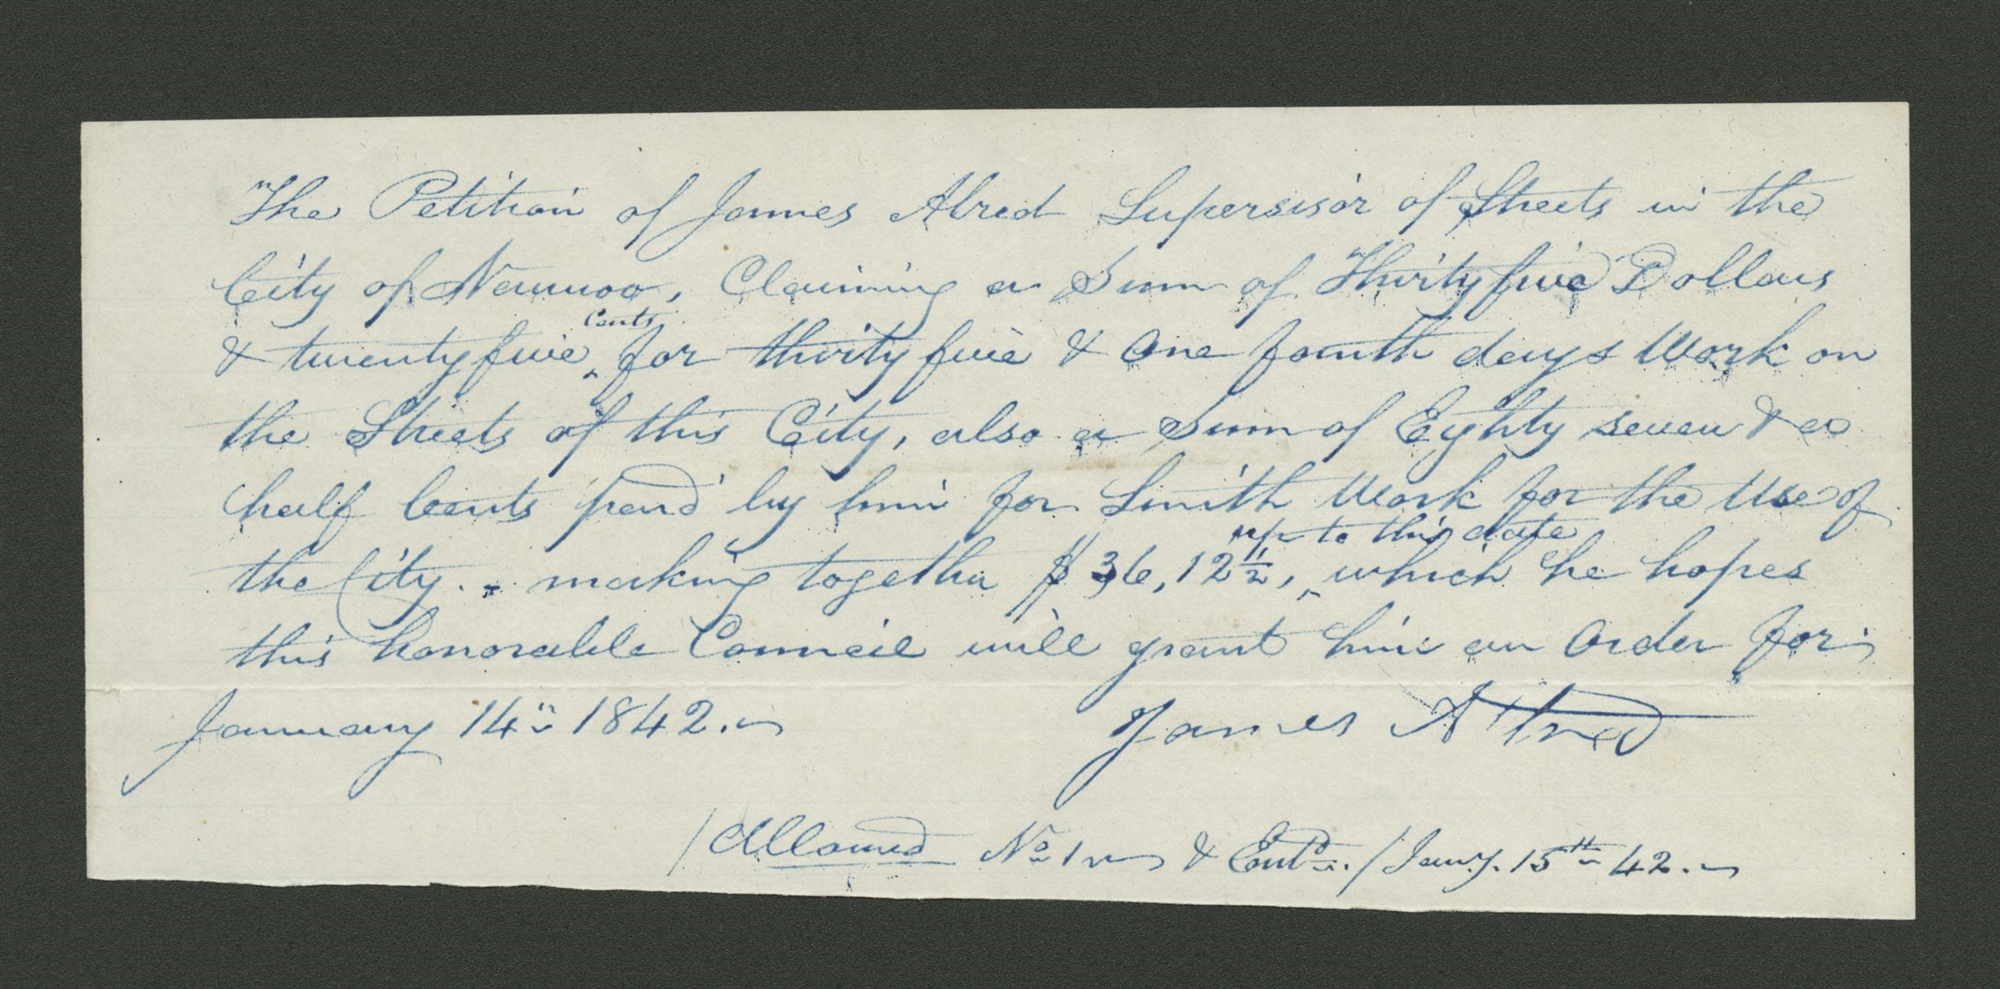 The Petition of James Alred Supervisor of Streets in the
City of Nauvoo, Claiming a Sum of Thirty five Dollars
& twenty five ^Cents for thirty five & One fourth days Work on
the Streets of this City, also a Sum of Eighty seven & a
half Cents paid by him for Smith Work for the Use of
the City. - making together $36,12½, ^up to this date which he hopes
this honorable Council will grant him an Order for;
January 14th 1842. James Allred
/Allowed No 1 & Entd./ Jany. 15th 42.